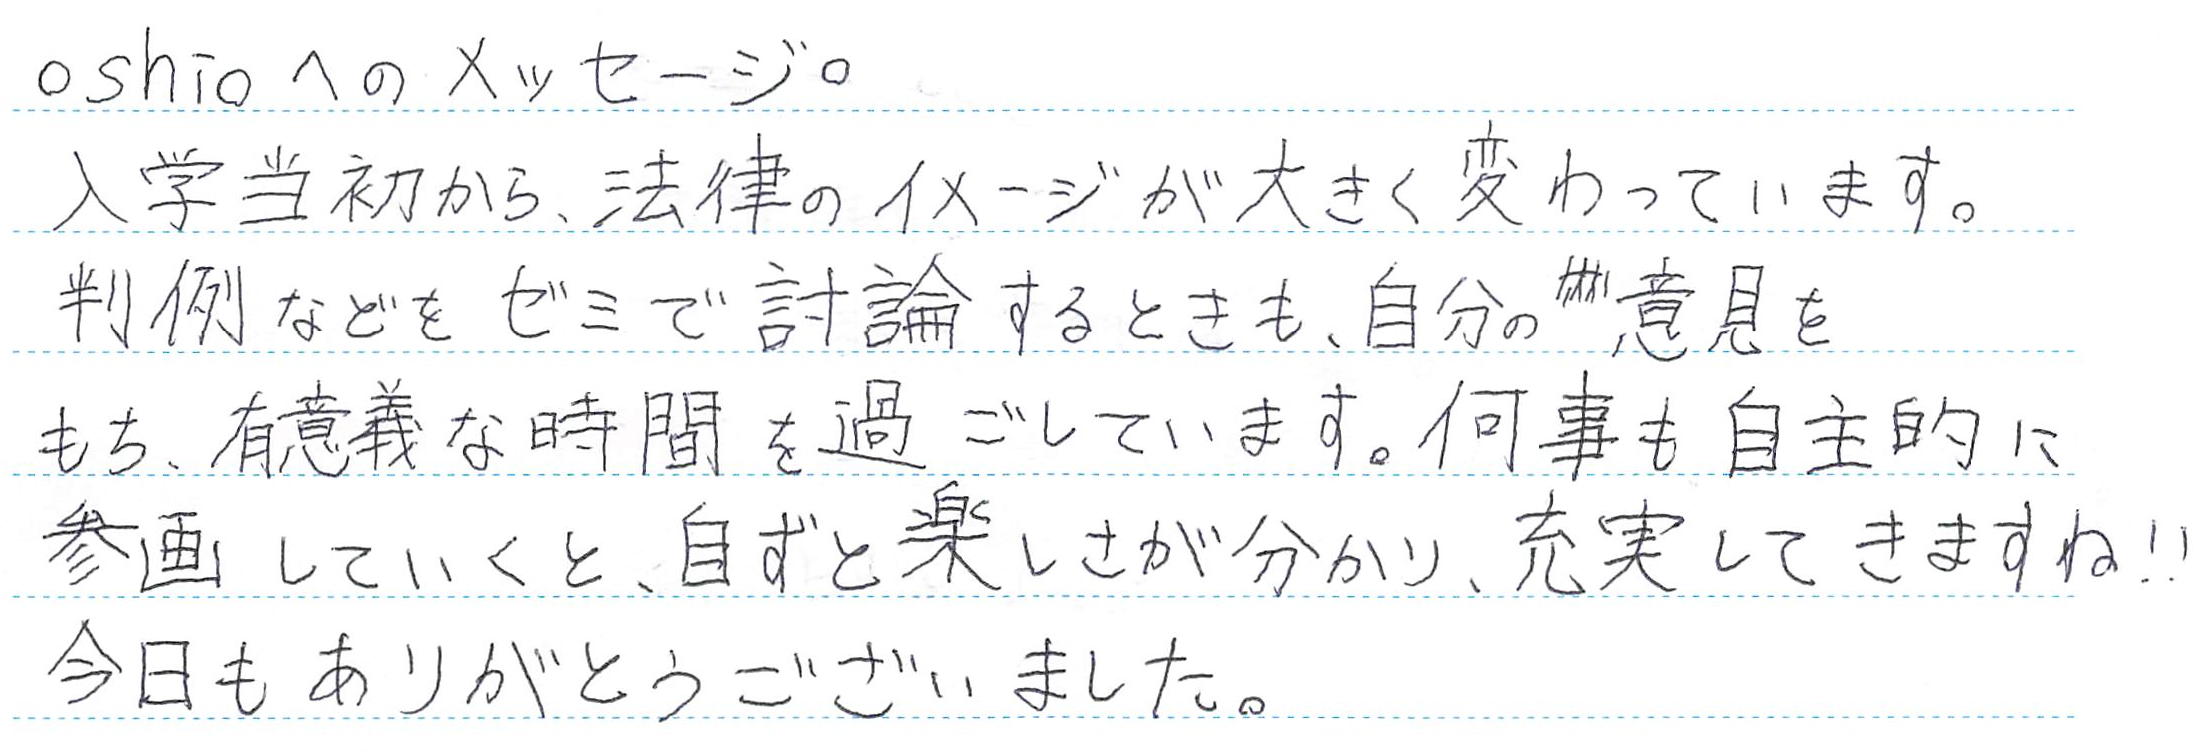 oshioへのメッセージ。
入学当初から、法律のイメージが大きく変わっています。
判例などをゼミで討論するときも、自分の意見を
もち、有意義な時間を過ごしています。何事も自主的に
参画していくと、自ずと楽しさが分かり、充実してきますね!!
今日もありがとうございました。